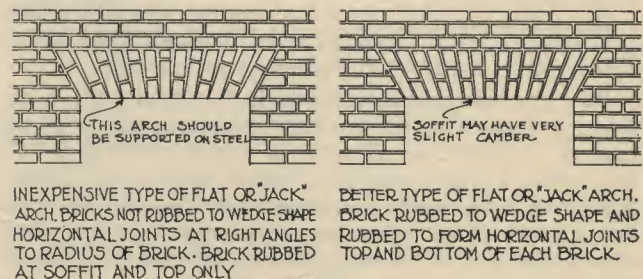 THIS ARCH SHOULD
BE SUPPORTED ON STEEL
INEXPENSIVE TYPE OF FLAT OR "JACK"
ARCH. BRICKS NOT RUBBED TO WEDGE SHAPE
HORIZONTAL JOINTS AT RIGHT ANGLES
TO RADIUS OF BRICK. BRICK RUBBED
AT SOFFIT AND TOP ONLY
SOFFIT MAY HAVE VERY
SLIGHT CAMBER
BETTER TYPE OF FLAT OR "JACK" ARCH.
BRICK RUBBED TO WEDGE SHAPE AND
RUBBED TO FORM HORIZONTAL JOINTS
TOP AND BOTTOM OF EACH BRICK.